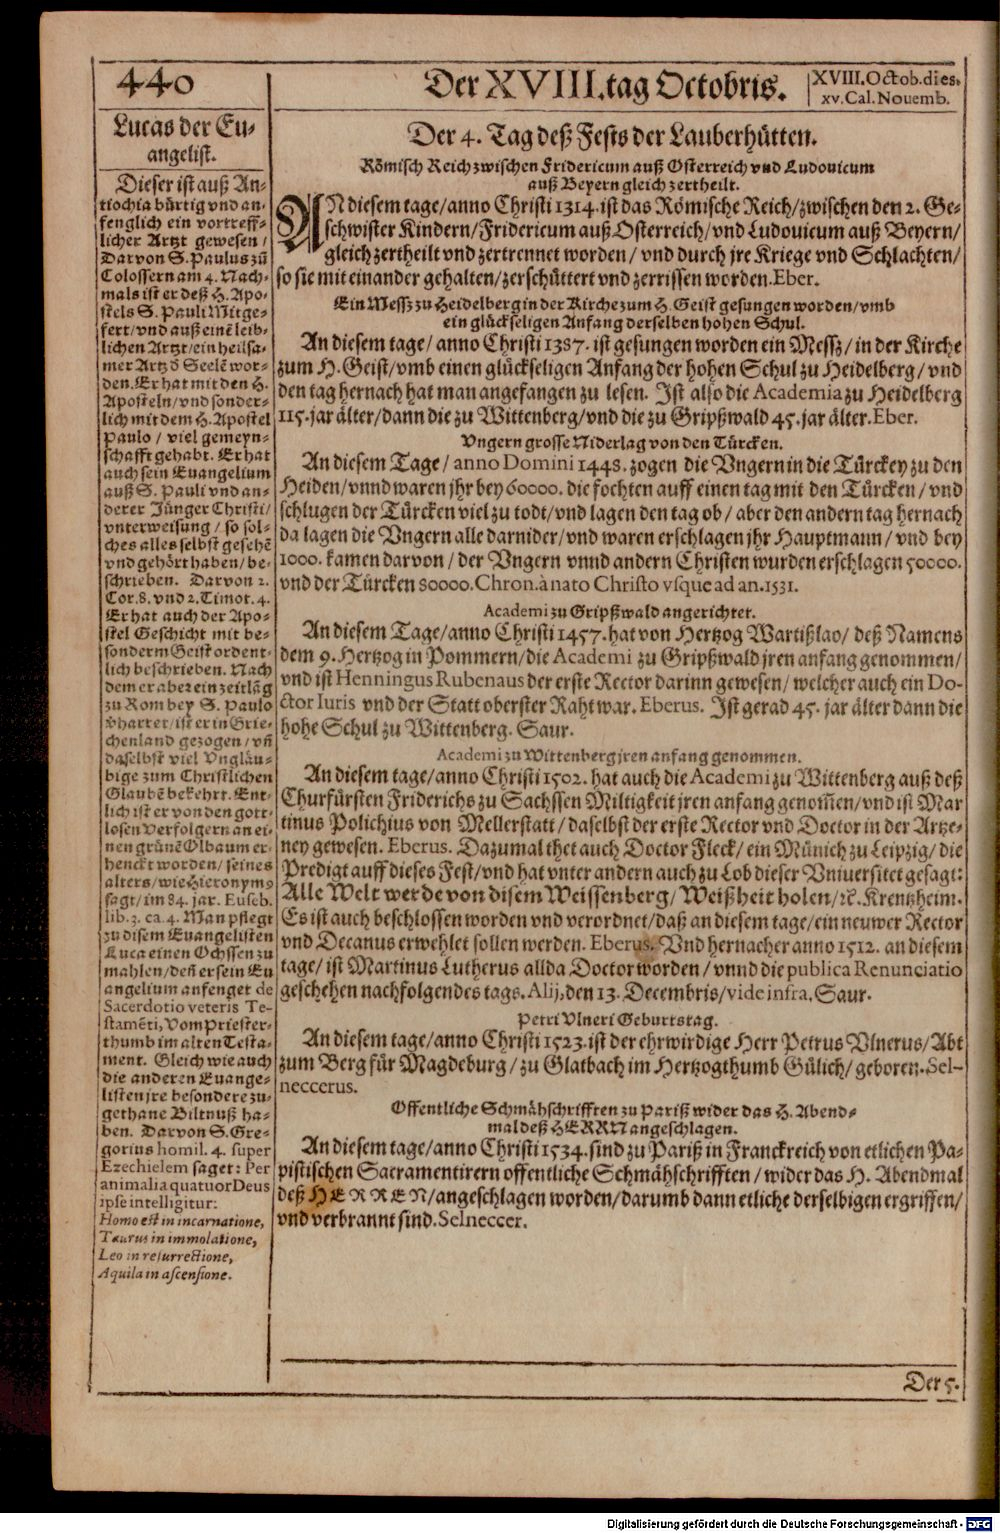 440
Der XVIII. tag Octobris.
XVIII. Octob. dies.
xv. Cal. Nouemb.
Lucas der Eu-
angelist.
Dieser ist auß An-
tiochia bürtig vnd an-
fenglich ein vortreff-
licher Artzt gewesen /
Daruon S. Paulus zů
Colossern am 4. Nach-
mals ist er deß H. Apo-
stels S. Pauli Mitge-
fert / vnd auß einē leib-
lichen Artzt / ein heilsa-
mer Artz d̓ Seelē wor-
den. Er hat mit den H.
Aposteln / vnd sonder-
lich mit dem H. Apostel
Paulo / viel gemeyn-
schafft gehabt. Er hat
auch sein Euangelium
auß S. Pauli vnd an-
derer Jünger Christi /
vnterweisung / so sol-
ches alles selbst gesehē
vnd gehört haben / be-
schrieben. Daruon 2.
Cor. 8. vnd 2. Timot. 4.
Er hat auch der Apo-
stel Geschicht mit be-
sonderm Geist ordent-
lich beschrieben. Nach
dem er aber ein zeitlāg
zu Rom bey S. Paulo
v̓harret / ist er in Grie-
chenland gezogen / vñ
daselbst viel Vngläu-
bige zum Christlichen
Glaubē bekehrt. Ent-
lich ist er von den gott-
losen Verfolgern an ei-
nen grünē Olbaum er-
henckt worden / seines
alters / wie Hieronymꝰ
sagt / im 84. jar. Euseb.
lib. 3. ca. 4. Man pflegt
zu disem Euangelisten
Luca einen Ochssen zu
mahlen / deñ er sein Eu
angelium anfenget de
Sacerdotio veteris Te-
stamēti, Vom Priester-
thumb im alten Testa-
ment. Gleich wie auch
die anderen Euange-
listen jre besondere zu-
gethane Biltnuß ha-
ben. Daruon S. Gre-
gorius homil. 4. super
Ezechielem saget: Per
animalia quatuor Deus
ipse intelligitur:
Homo est in incarnatione,
Taurus in immolatione,
Leo in resurrectione,
Aquila in ascensione.
Der 4. Tag deß Fests der Lauberhütten.
Römisch Reich zwischen Fridericum auß Osterreich vnd Ludouicum
auß Beyern gleich zertheilt.
AN diesem tage / anno Christi 1314. ist das Römische Reich / zwischen den 2. Ge-
schwister Kindern / Fridericum auß Osterreich / vnd Ludouicum auß Beyern /
gleich zertheilt vnd zertrennet worden / vnd durch jre Kriege vnd Schlachten /
so sie mit einander gehalten / zerschüttert vnd zerrissen worden. Eber.
Ein Messz zu Heidelberg in der Kirche zum H. Geist gesungen worden / vmb
ein glückseligen Anfang derselben hohen Schul.
An diesem tage / anno Christi 1387. ist gesungen worden ein Messz / in der Kirche
zum H. Geist / vmb einen glückseligen Anfang der hohen Schul zu Heidelberg / vnd
den tag hernach hat man angefangen zu lesen. Ist also die Academia zu Heidelberg
115. jar älter / dann die zu Wittenberg / vnd die zu Gripßwald 45. jar älter. Eber.
Vngern grosse Niderlag von den Türcken.
An diesem Tage / anno Domini 1448. zogen die Vngern in die Türckey zu den
Heiden / vnnd waren jhr bey 60000. die fochten auff einen tag mit den Türcken / vnd
schlugen der Türcken viel zu todt / vnd lagen den tag ob / aber den andern tag hernach
da lagen die Vngern alle darnider / vnd waren erschlagen jhr Hauptmann / vnd bey
1000. kamen darvon / der Vngern vnnd andern Christen wurden erschlagen 50000.
vnd der Türcken 80000. Chron. à nato Christo vsque ad an. 1531.
Academi zu Gripßwald angerichtet.
An diesem Tage / anno Christi 1457. hat von Hertzog Wartißlao / deß Namens
dem 9. Hertzog in Pommern / die Academi zu Gripßwald jren anfang genommen /
vnd ist Henningus Rubenaus der erste Rector darinn gewesen / welcher auch ein Do-
ctor Iuris vnd der Statt oberster Raht war. Eberus. Ist gerad 45. jar älter dann die
hohe Schul zu Wittenberg. Saur.
Academi zu Wittenberg jren anfang genommen.
An diesem tage / anno Christi 1502. hat auch die Academi zu Wittenberg auß deß
Churfürsten Friderichs zu Sachssen Miltigkeit jren anfang genom̄en / vnd ist Mar
tinus Polichius von Mellerstatt / daselbst der erste Rector vnd Doctor in der Artze-
ney gewesen. Eberus. Dazumal thet auch Doctor Fleck / ein Münich zu Leipzig / die
Predigt auff dieses Fest / vnd hat vnter andern auch zu Lob dieser Vniuersitet gesagt:
Alle Welt werde von disem Weissenberg / Weißheit holen / ꝛc. Krentzheim.
Es ist auch beschlossen worden vnd verordnet / daß an diesem tage / ein neuwer Rector
vnd Decanus erwehlet sollen werden. Eberus. Vnd hernacher anno 1512. an diesem
tage / ist Martinus Lutherus allda Doctor worden / vnnd die publica Renunciatio
geschehen nachfolgendes tags. Alij, den 13. Decembris / vide infra, Saur.
Petri Vlneri Geburtstag.
An diesem tage / anno Christi 1523. ist der ehrwirdige Herr Petrus Vlnerus / Abt
zum Berg für Magdeburg / zu Glatbach im Hertzogthumb Gülich / geboren. Sel-
neccerus.
Offentliche Schmähschrifften zu Pariß wider das H. Abend-
mal deß HERRN angeschlagen.
An diesem tage / anno Christi 1534. sind zu Pariß in Franckreich von etlichen Pa-
pistischen Sacramentirern offentliche Schmähschrifften / wider das H. Abendmal
deß HERREN / angeschlagen worden / darumb dann etliche derselbigen ergriffen /
vnd verbrannt sind. Selneccer.
Der 5.
Digitalisierung gefördert durch die Deutsche Forschungsgemeinschaft - DFG